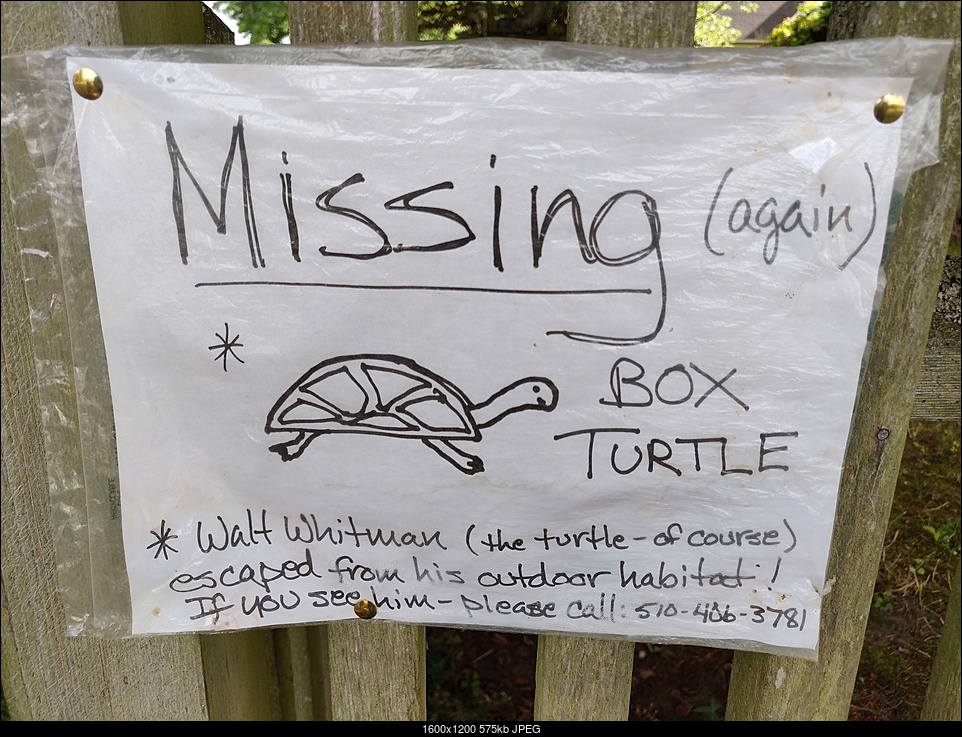 Missing (again)
*
BOX
TURTLE
* Walt Whitman (the turtle - of course)
escaped from his outdoor habitat!
If you see him - please call: 510-406-3781
1600x1200 575kb JPEG